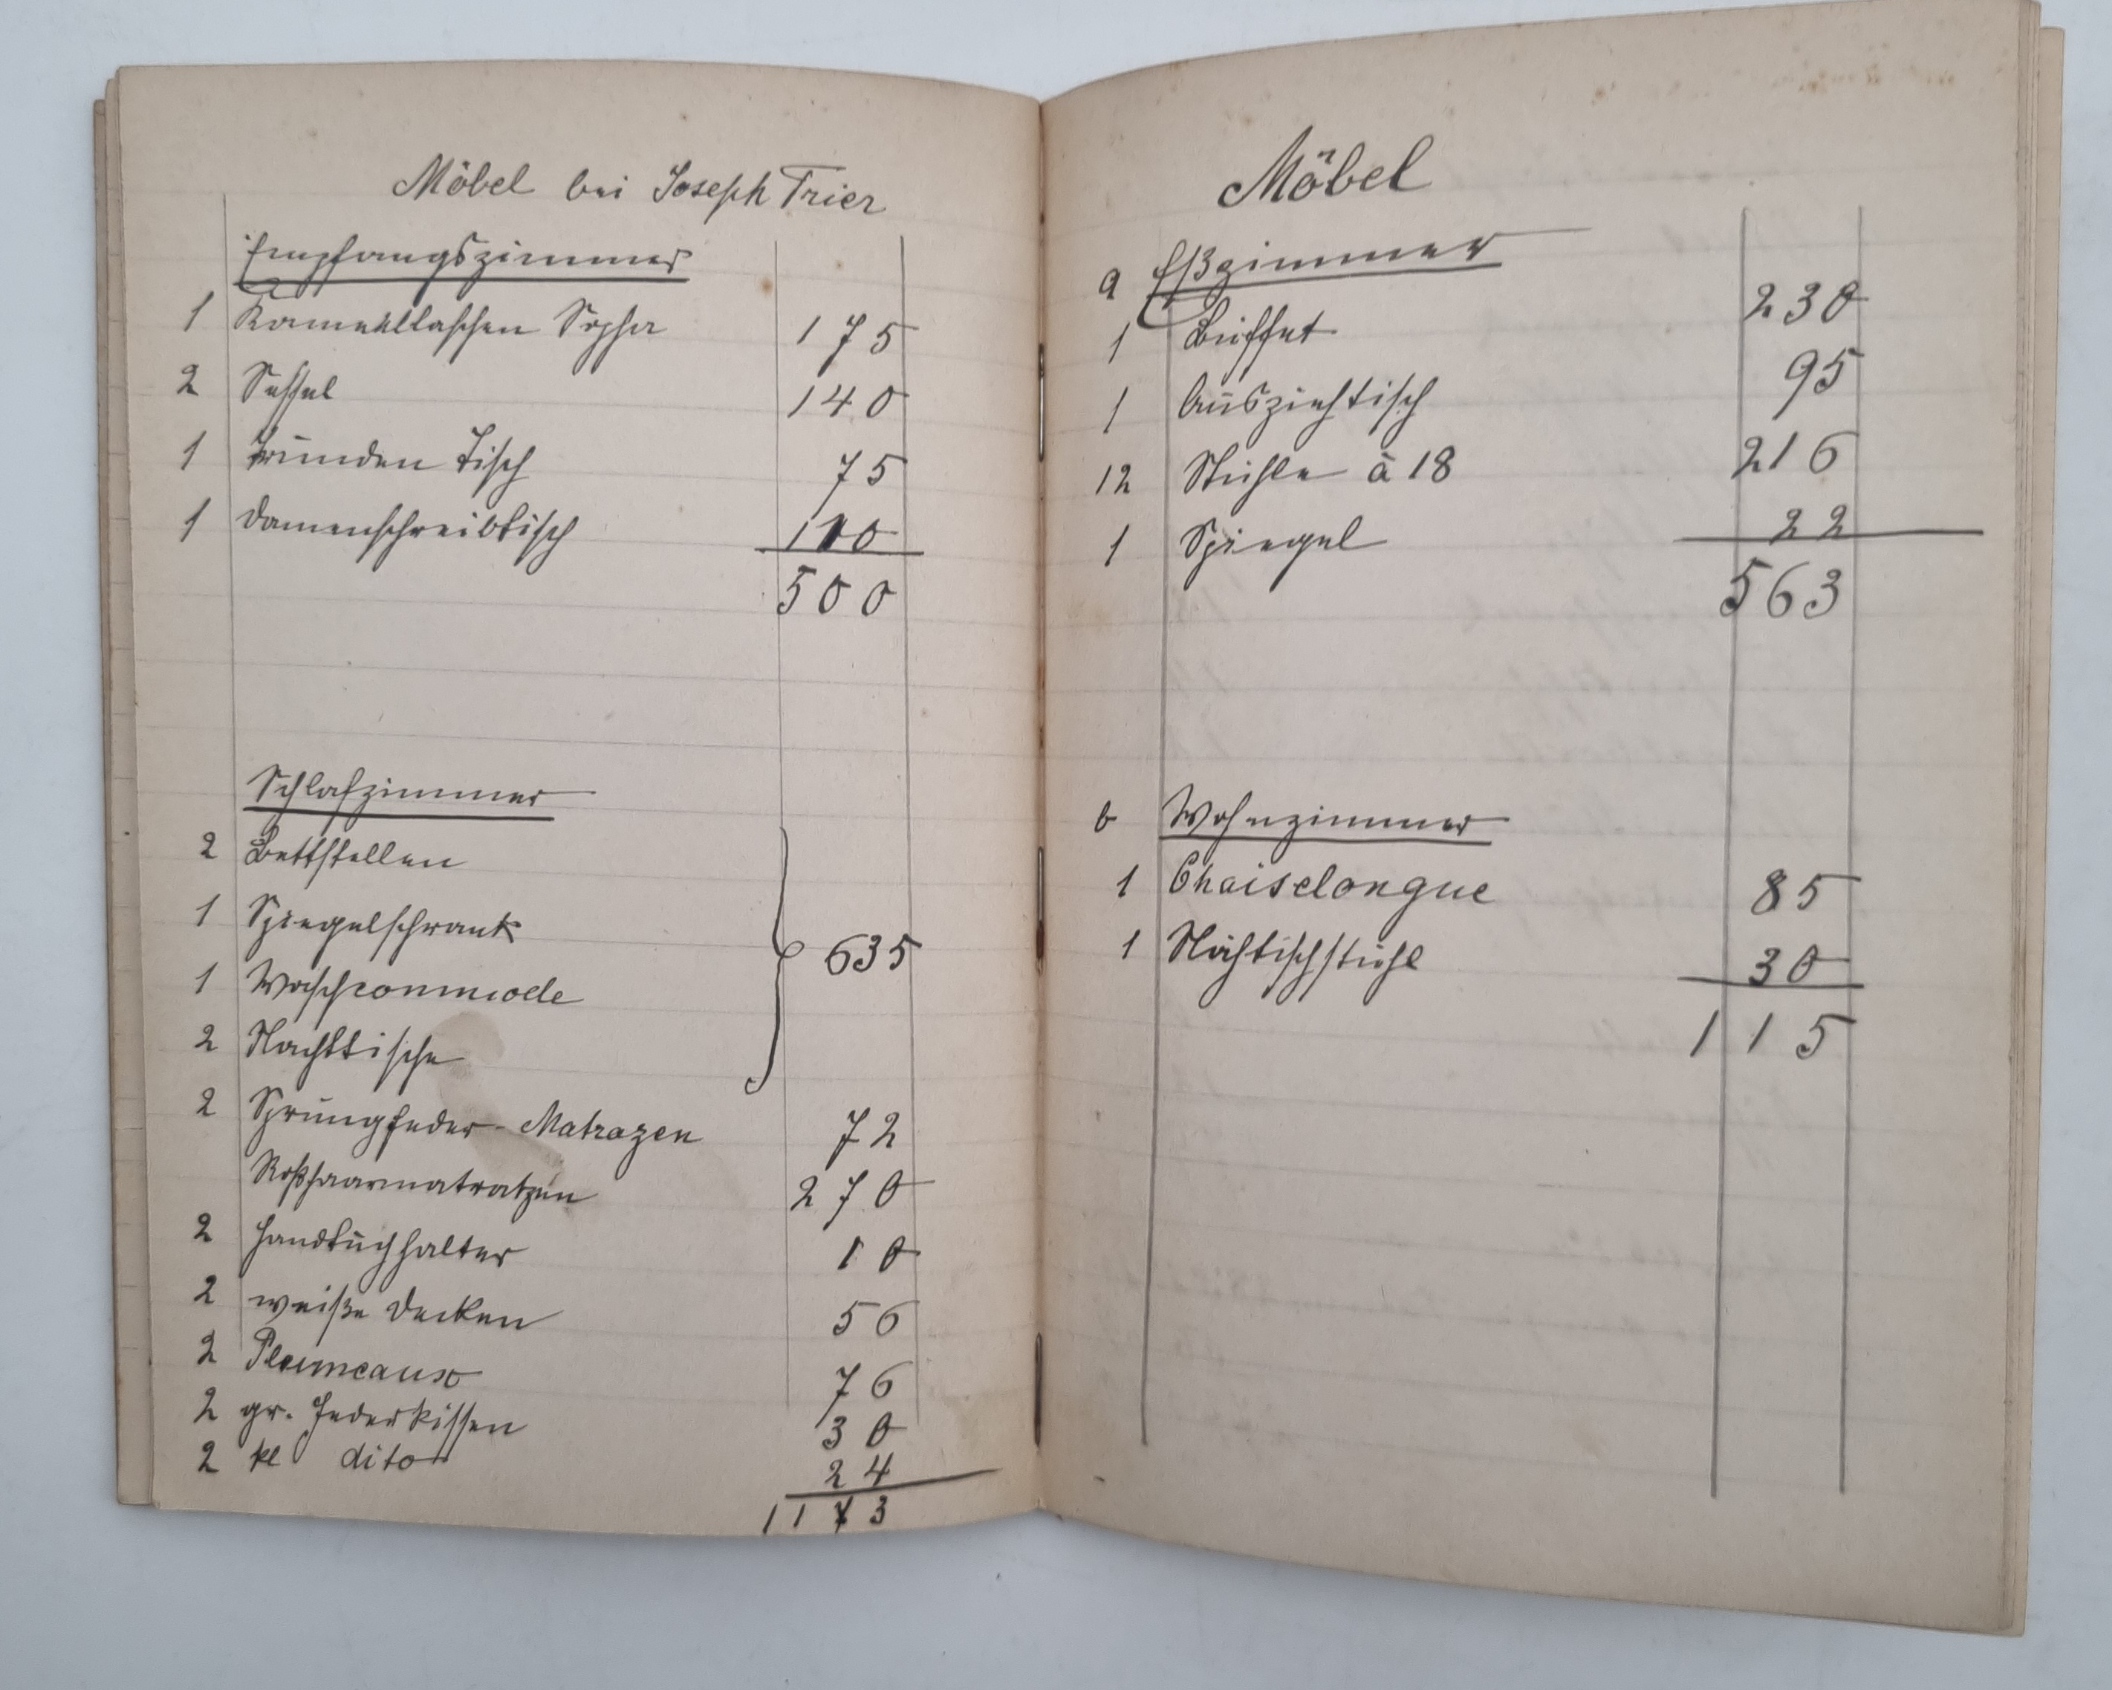 Möbel bei Joseph Trier
Empfangszimmer
1 Kameeltaschen Sopha 175
2 Sessel 140
1 runden Tisch 75
1 Damenschreibtisch 110
500
Schlafzimmer
2 Bettstellen
1 Spiegelschrank
635
1 Waschcommode
2 Nachttische
2 Sprungfeder-Matrazen 72
Roßhaarmatratzen 270
2 Handtuchhalter 10
2 weiße Decken 56
2 Plumeaux 76
2 gr. Federkissen 30
2 kl dito 24
1173
Möbel
a Eßzimmer
1 Büffet 230
1 Ausziehtisch 95
12 Stühle à 18 216
1 Spiegel 22
563
b Wohnzimmer
1 Chaiselongue 85
1 Nähtischstuhl 30
115